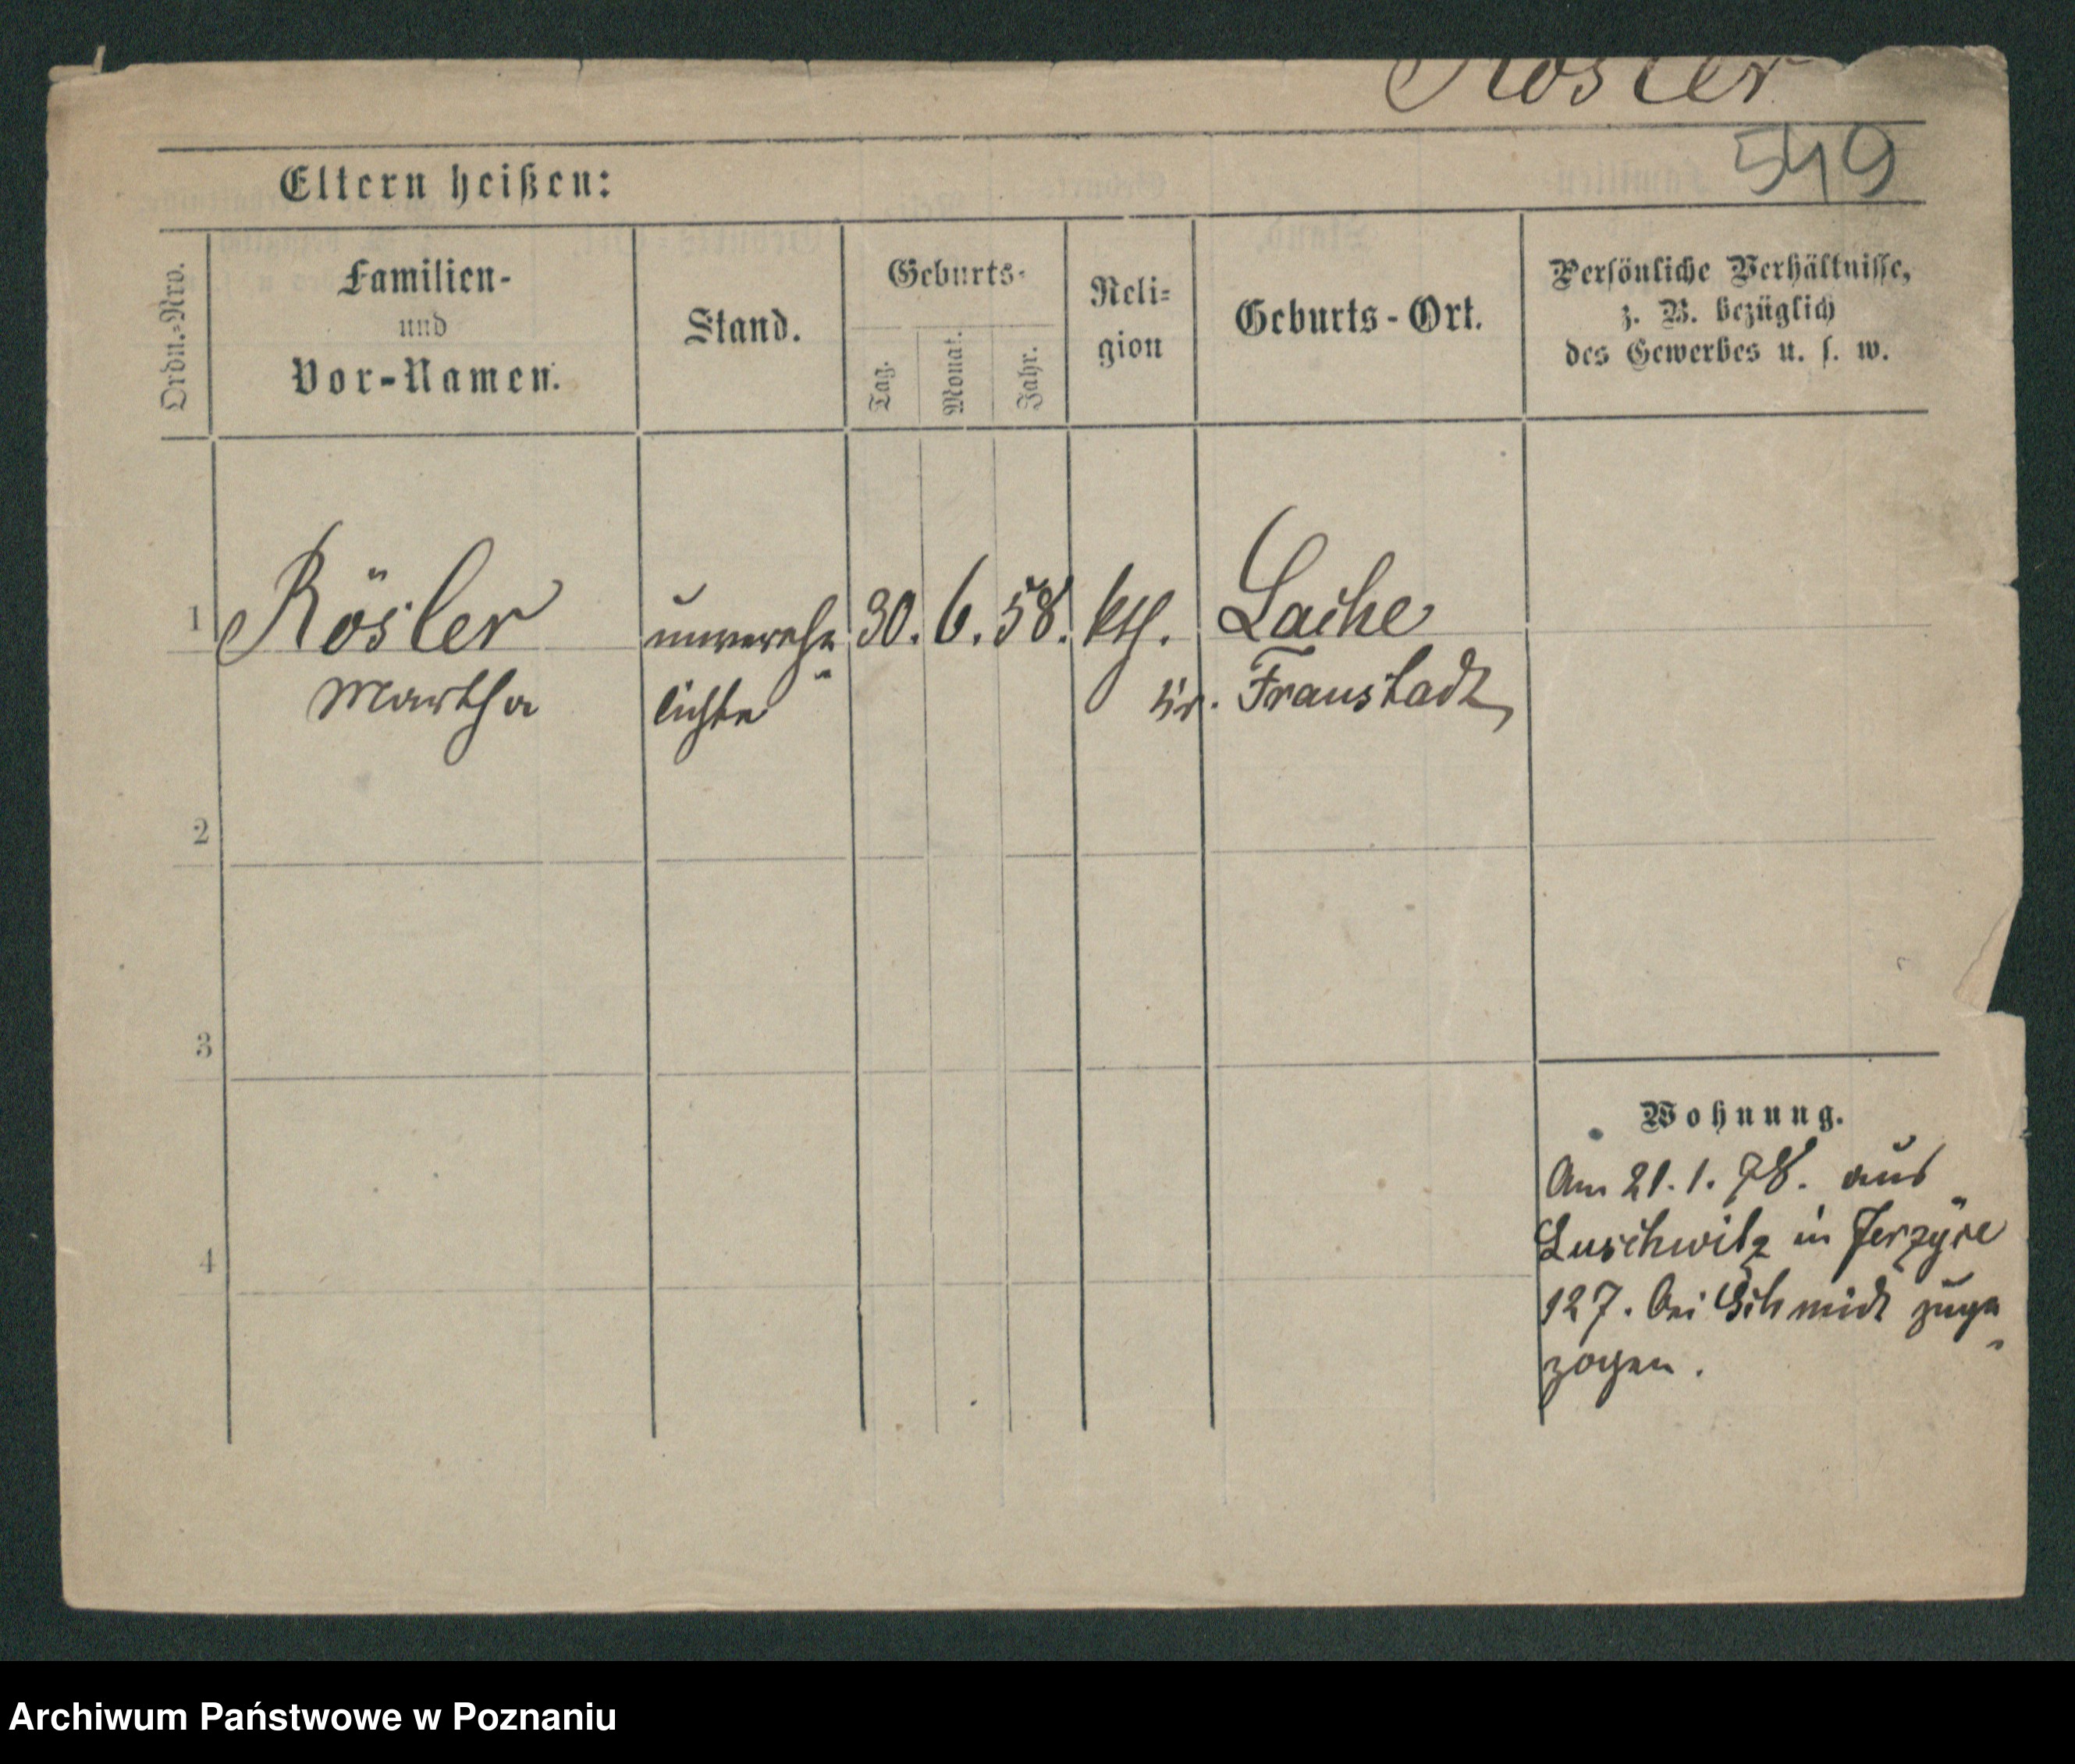 Rösler
549
Eltern heißen:
Ordn.-Nro.
Familien-
und
Vor-Namen.
Stand.
Geburts-
Tag.
Monat.
Jahr.
Reli-
gion
Geburts-Ort.
Persönliche Verhältnisse,
z. B. bezüglich
des Gewerbes u. s. w.
1
Rösler
Martha
unvereh-
lichte
30. 6. 58.
kth.
Lache
Kr. Fraustadt
2
3
4
Wohnung.
Am 21. 1. 78. aus
Luschwitz in Jerzyce
127. bei Schmidt zuge-
zogen.
Archiwum Państwowe w Poznaniu